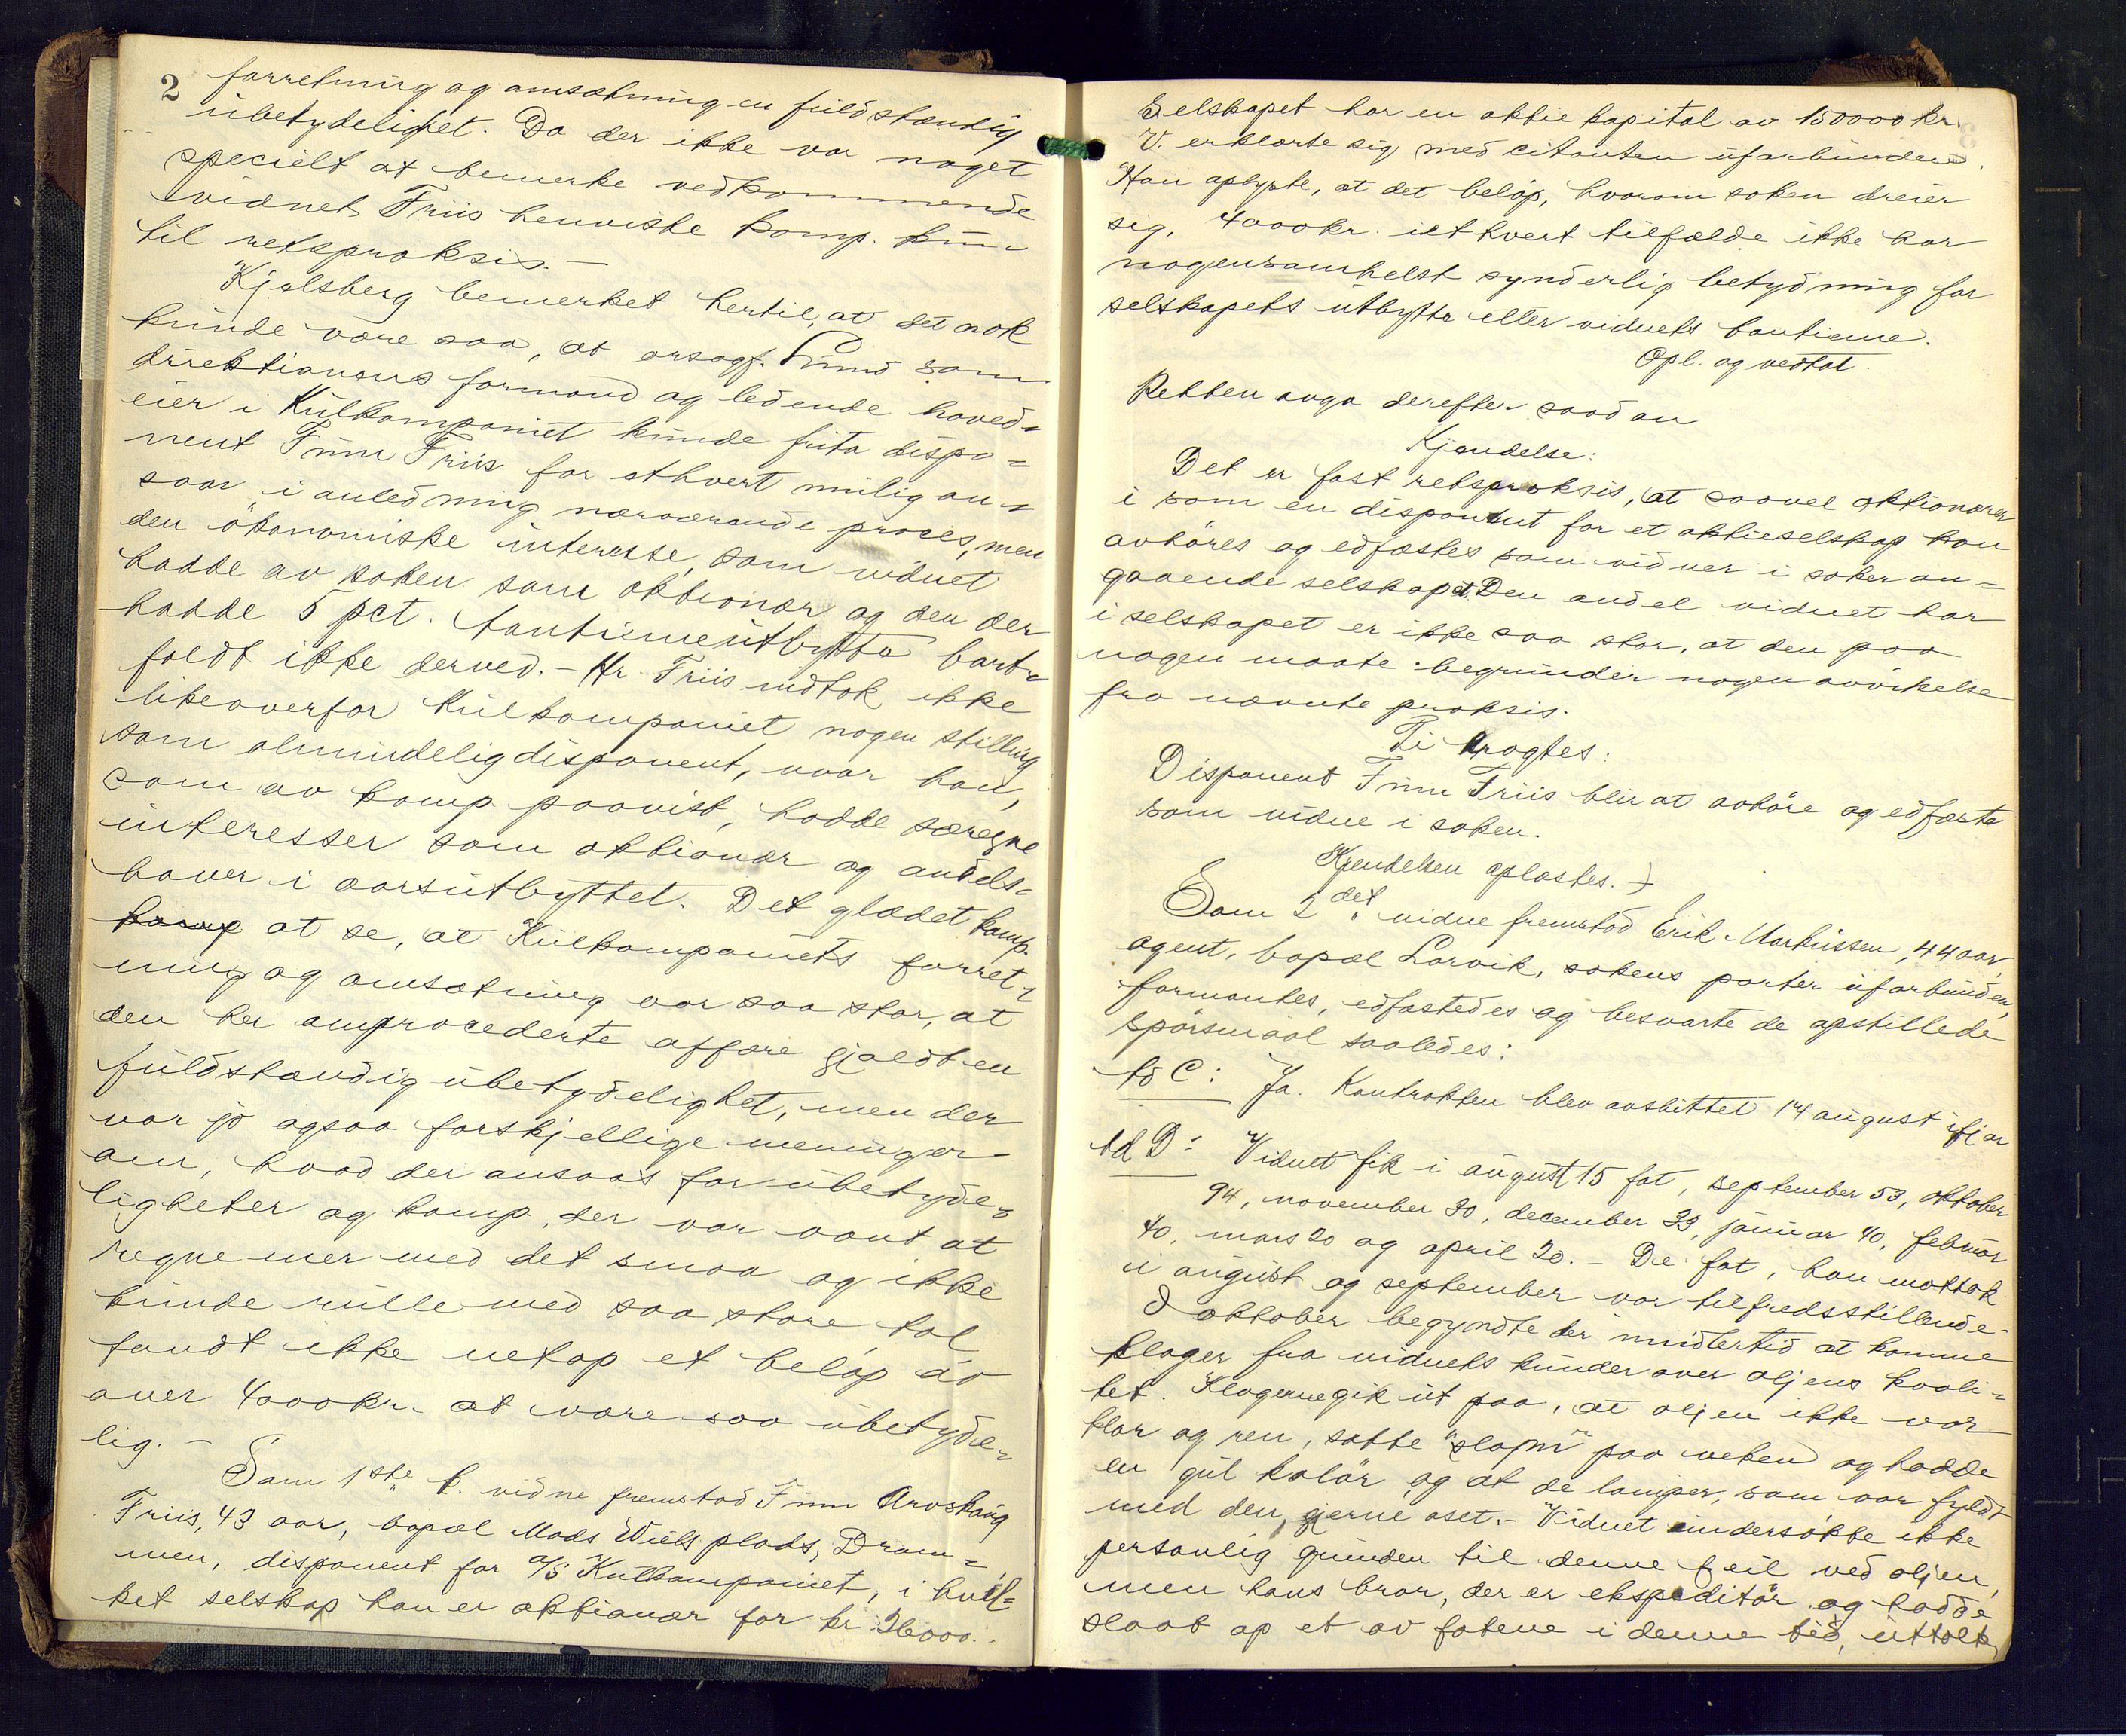 2
forretning og omsætning en fuldstændig
ubetydelighet. Da der ikke var noget
specielt at bemerke vedkommende
vidnet Friis henviste komp. kun
til retspraksis. —
Kjelsberg bemerket hertil, at det nok
kunde være saa, at orsagf. Lund som
direktionens formand og ledende hoved-
eier i Kulkompaniet kunde frita dispo-
nent Finn Friis for ethvert mulig an-
svar i anledning nærværende proces, men
den ökonomiske interesse, som vidnet
hadde av saken som aktionær og den der
hadde 5 pct. tantiemeutbytte bort-
faldt ikke derved. - Hr. Friis indtok ikke
likeoverfor Kulkompaniet nogen stilling
som almindelig disponent, naar han,
som av komp. paavist, hadde særegne
interesser som aktionær og andels-
haver i aarsutbyttet. Det glædet komp.
komp at se, at Kulkompaniets forret-
ning og omsætning var saa stor, at
den her omprocederte affære gjaldt en
fuldstændig ubetydelighet, men der
var jo ogsaa forskjellige meninger
om, hvad der ansaas for ubetyde-
ligheter og komp. der var vant at
regne mer med det smaa og ikke
kunde rulle med saa store tal
fandt ikke netop et beløp av
over 4000 kr. at være saa ubetyde-
lig. —
Som 1ste k. vidne fremstod Finn Aroskaug
Friis, 43 aar, bopæl Mads Wiels plads, Dram-
men, disponent for a/s Kulkompaniet, i hvil-
ket selskap han er aktionær for kr. 36000..
Selskapet har en aktiekapital av 150000 kr.
V. erklærte sig med citanten uforbunden.
Han oplyste, at det beløp, hvorom saken dreier
sig, 4000 kr. i ethvert tilfælde ikke har
nogensomhelst synderlig betydning for
selskapets utbytte eller vidnets tantieme.
Opl. og vedtat.
Retten avga derefter saadan
Kjendelse:
Det er fast retspraksis, at saavel aktionærer
i som en disponent for et aktieselskap kan
avhöres og edfæstes som vidner i saker an-
gaaende selskapet. Den andel vidnet har
i selskapet er ikke saa stor, at den paa
nogen maate begrunder nogen avvikelse
fra nævnte praksis.
Ti kragtes:
Disponent Finn Friis blir at avhöre og edfæste
som vidne i saken.
Kjendelsen oplæstes. )
Som 2det vidne fremstod Erik Markussen, 44 aar,
agent, bopæl Larvik, sakens parter uforbunden,
formantes, edfæstedes og besvarte de opstillede
spörsmaal saaledes:
td C: Ja. Kontrakten blev avsluttet 14 august ifjor
td D: Vidnet fik i august 15 fat, september 53, oktober
94, november 30, december 33, januar 40, februar
40, mars 20 og april 20. - De fat, han mottok
i august og september var tilfredsstillende.
I oktober begyndte der imidlertid at komme
klager fra vidnets kunder over oljens kvali-
tet. Klagerne gik ut paa, at oljen ikke var
klar og ren, satte "slam" paa veken og hadde
en gul kolör og at de lamper, som var fyldt
med den, gjerne oset. - Vidnet undersökte ikke
personlig grunden til denne feil ved oljen,
men hans bror, der er ekspeditör og hadde
slaat op et av fatene i denne tid, uttalte,